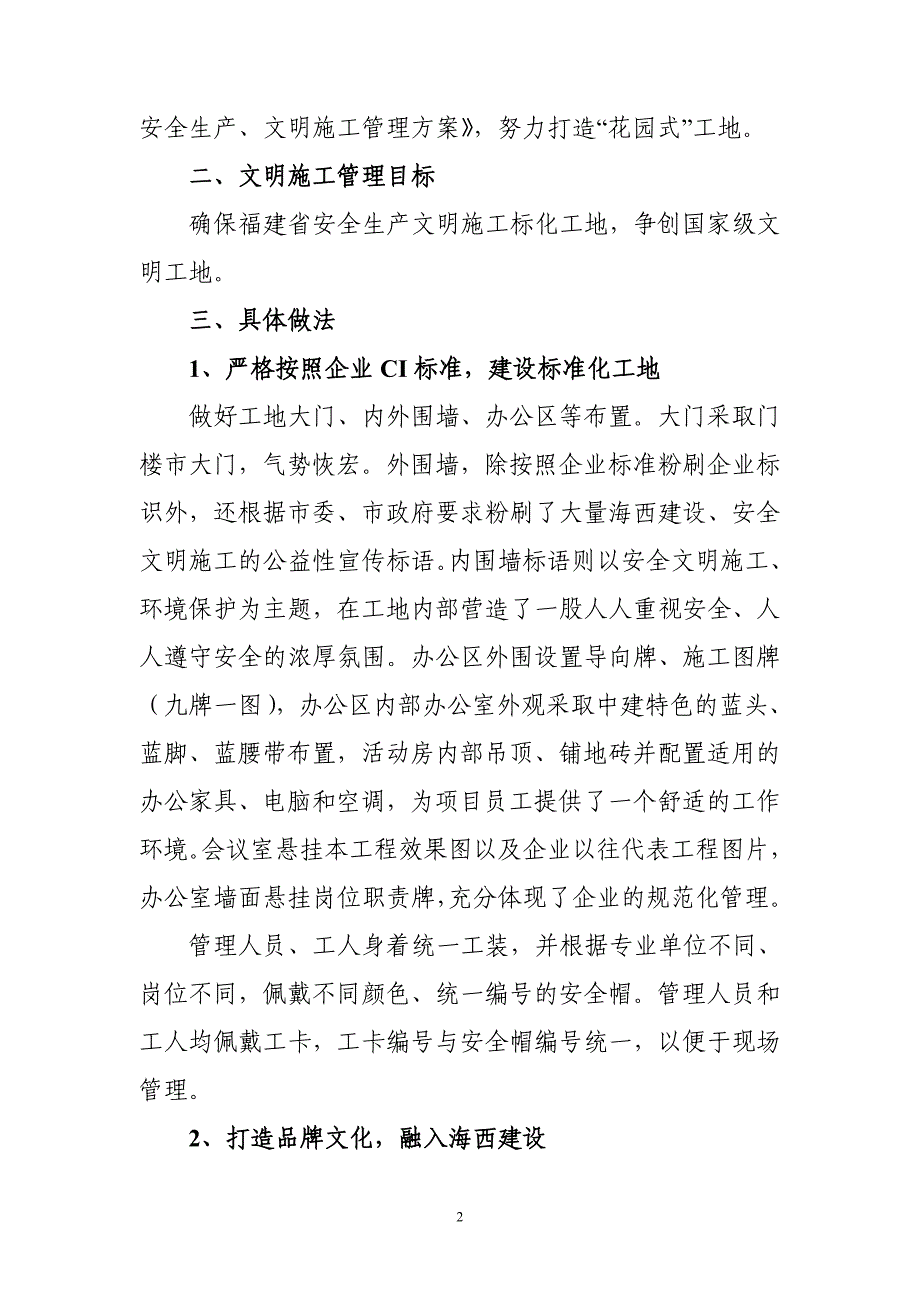 安全生产、文明施工管理方案》，努力打造“花园式”工地。
二、文明施工管理目标
确保福建省安全生产文明施工标化工地，争创国家级文
明工地。
三、具体做法
1、严格按照企业 CI 标准，建设标准化工地
做好工地大门、内外围墙、办公区等布置。大门采取门
楼市大门，气势恢宏。外围墙，除按照企业标准粉刷企业标
识外，还根据市委、市政府要求粉刷了大量海西建设、安全
文明施工的公益性宣传标语。内围墙标语则以安全文明施工、
环境保护为主题，在工地内部营造了一股人人重视安全、人
人遵守安全的浓厚氛围。办公区外围设置导向牌、施工图牌
（九牌一图），办公区内部办公室外观采取中建特色的蓝头、
蓝脚、蓝腰带布置，活动房内部吊顶、铺地砖并配置适用的
办公家具、电脑和空调，为项目员工提供了一个舒适的工作
环境。会议室悬挂本工程效果图以及企业以往代表工程图片，
办公室墙面悬挂岗位职责牌，充分体现了企业的规范化管理。
管理人员、工人身着统一工装，并根据专业单位不同、
岗位不同，佩戴不同颜色、统一编号的安全帽。管理人员和
工人均佩戴工卡，工卡编号与安全帽编号统一，以便于现场
管理。
2、打造品牌文化，融入海西建设
2